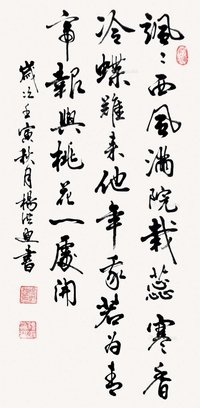 飒〻西风满院栽蕊寒香
冷蝶难来他年我若为青
帝报与桃花一处开
岁次壬寅秋月杨浩迪书